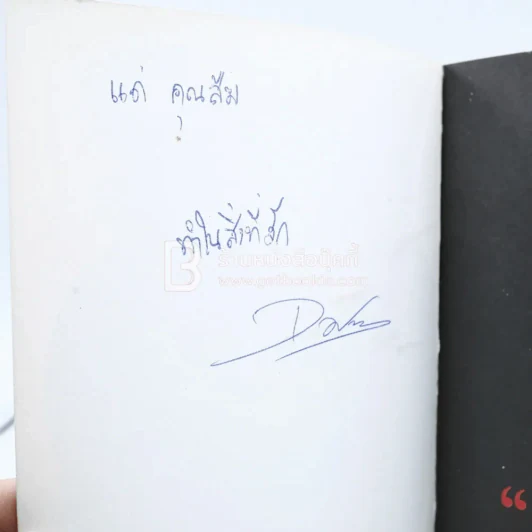 แด่ คุณส้ม
ทำในสิ่งที่รัก
ร้านหนังสือบุ๊คดี้
“